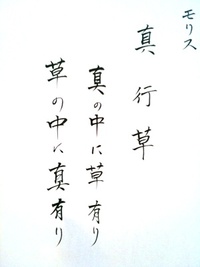 モリス
真行草
真の中に草有り
草の中に真有り